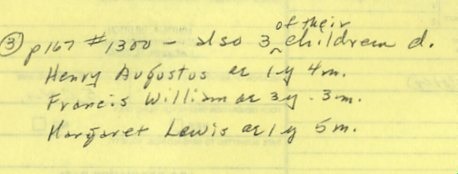 ③ p167 #1300 - also 3 of their children d.
Henry Augostos ae 1y 4m.
Francis William ae 3y. 3m.
Margaret Lewis ae 1y 5m.